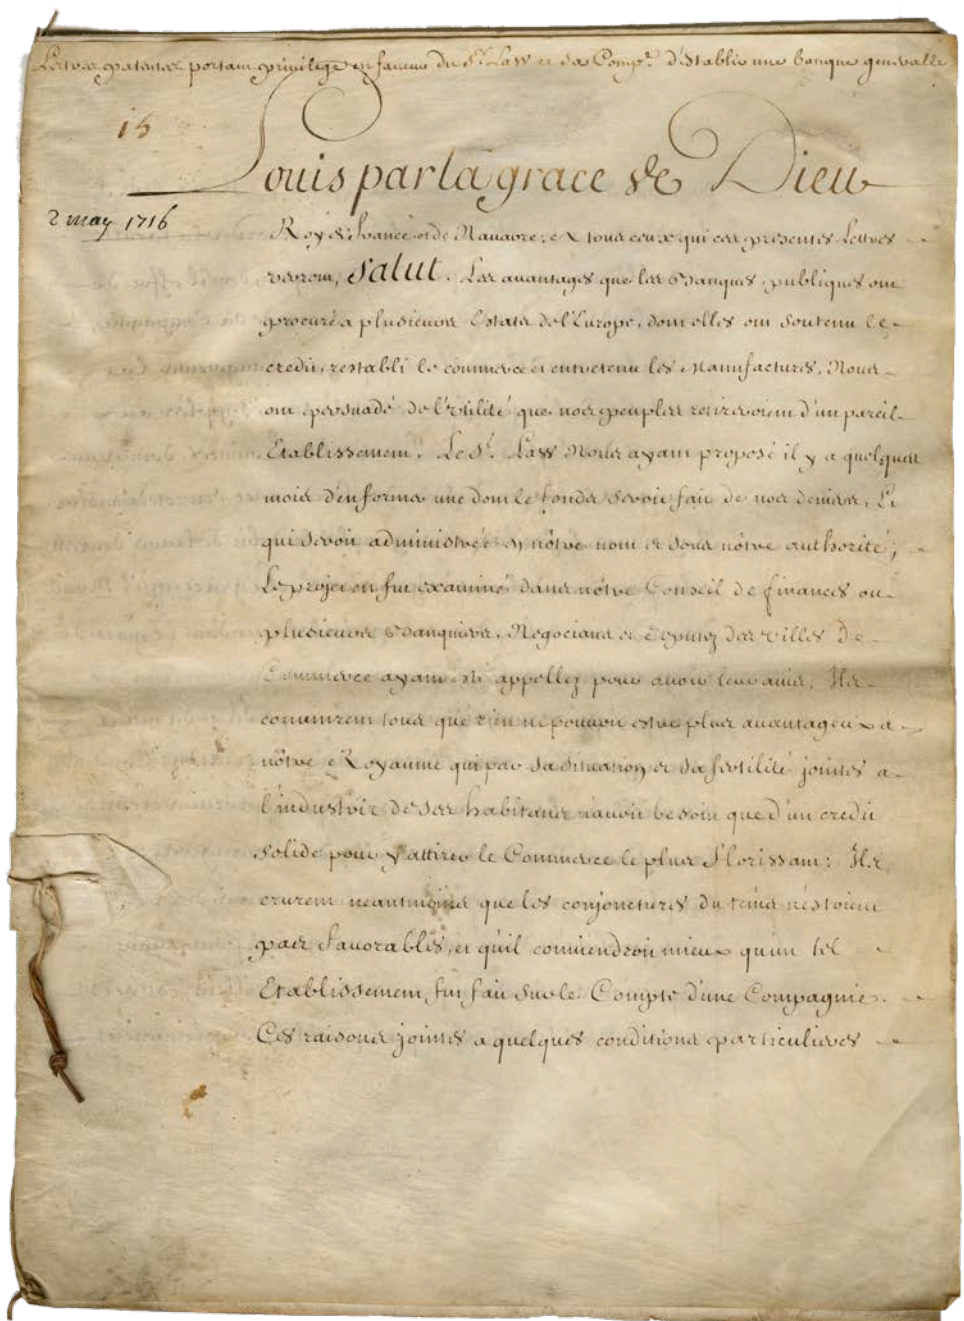 Lettres patentes portant privilege en faveur du Sr. Law et sa Compe. d'establir une banque generalle
15
Louis par la grace de Dieu
2 may 1716
Roy de france et de Navarre, a tous ceux qui ces presentes Lettres
verront, Salut. Les avantages que les Banques publiques ont
procuré a plusieurs Estats de l'Europe, dont elles ont soutenu le
credit, restabli le commerce et entretenu les Manufactures, Nous
ont persuadé de l'utilité que nos peuples retireroient d'un pareil
Etablissement. Le Sr. Law Nous ayant proposé il y a quelques
mois d'en former une dont le fonds seroit fait de nos deniers, Et
qui seroit administrée en nôtre nom et sous nôtre authorité,
Le projet en fut examiné dans nôtre Conseil de finances ou
plusieurs Banquiers, Negocians et Deputez des villes de
Commerce ayant esté appellez pour avoir leur avis, Ils
convinrent tous que rien ne pouvoit estre plus avantageux a
nôtre Royaume qui par sa situation et sa fertilité jointes a
l'industrie de ses habitans n'avoit besoin que d'un credit
solide pour y attirer le Commerce le plus florissant: Ils
crurent neantmoins que les conjonctures du tems n'estoient
pas favorables, et qu'il conviendroit mieux qu'un tel
Etablissement fut fait sur le Compte d'une Compagnie.
Ces raisons jointes a quelques conditions particulieres